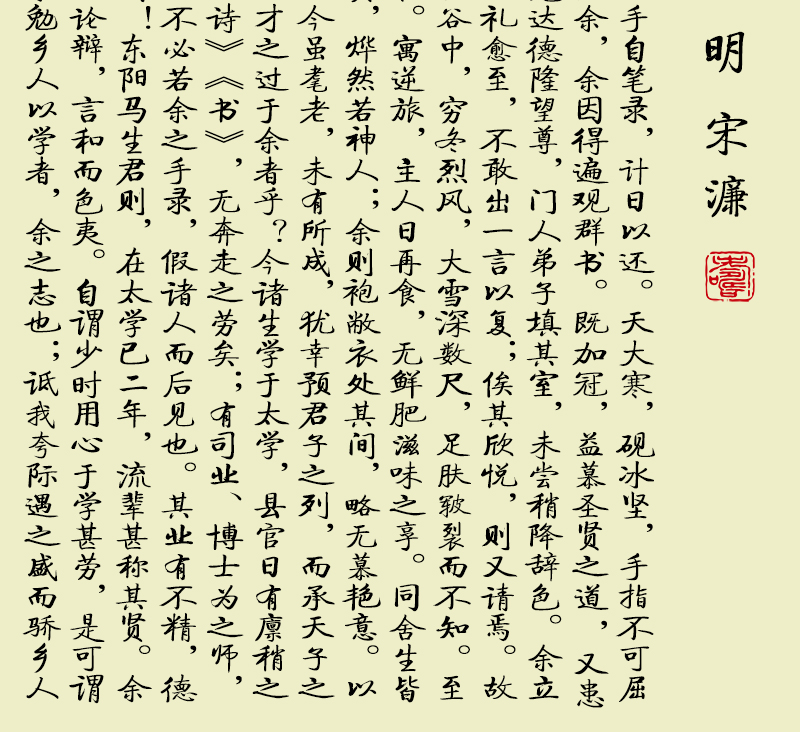 明 宋濂
手自笔录，计日以还。天大寒，砚冰坚，手指不可屈
余，余因得遍观群书。既加冠，益慕圣贤之道，又患
达德隆望尊，门人弟子填其室，未尝稍降辞色。余立
礼愈至，不敢出一言以复；俟其欣悦，则又请焉。故
谷中，穷冬烈风，大雪深数尺，足肤皲裂而不知。至
。寓逆旅，主人日再食，无鲜肥滋味之享。同舍生皆
，烨然若神人；余则袍敝衣处其间，略无慕艳意。以
今虽耄老，未有所成，犹幸预君子之列，而承天子之
才之过于余者乎？今诸生学于太学，县官日有廪稍之
诗》《书》，无奔走之劳矣；有司业、博士为之师，
不必若余之手录，假诸人而后见也。其业有不精，德
！东阳马生君则，在太学已二年，流辈甚称其贤。余
论辩，言和而色夷。自谓少时用心于学甚劳，是可谓
勉乡人以学者，余之志也；诋我夸际遇之盛而骄乡人